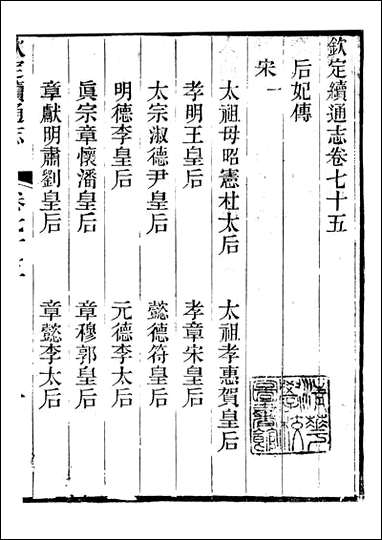 欽定續通志卷七十五
后妃傳
宋一
太祖母昭憲杜太后 太祖孝惠賀皇后
孝明王皇后 孝章宋皇后
太宗淑德尹皇后 懿德符皇后
明德李皇后 元德李太后
眞宗章懷潘皇后 章穆郭皇后
章獻明肅劉皇后 章懿李太后
欽定續通志